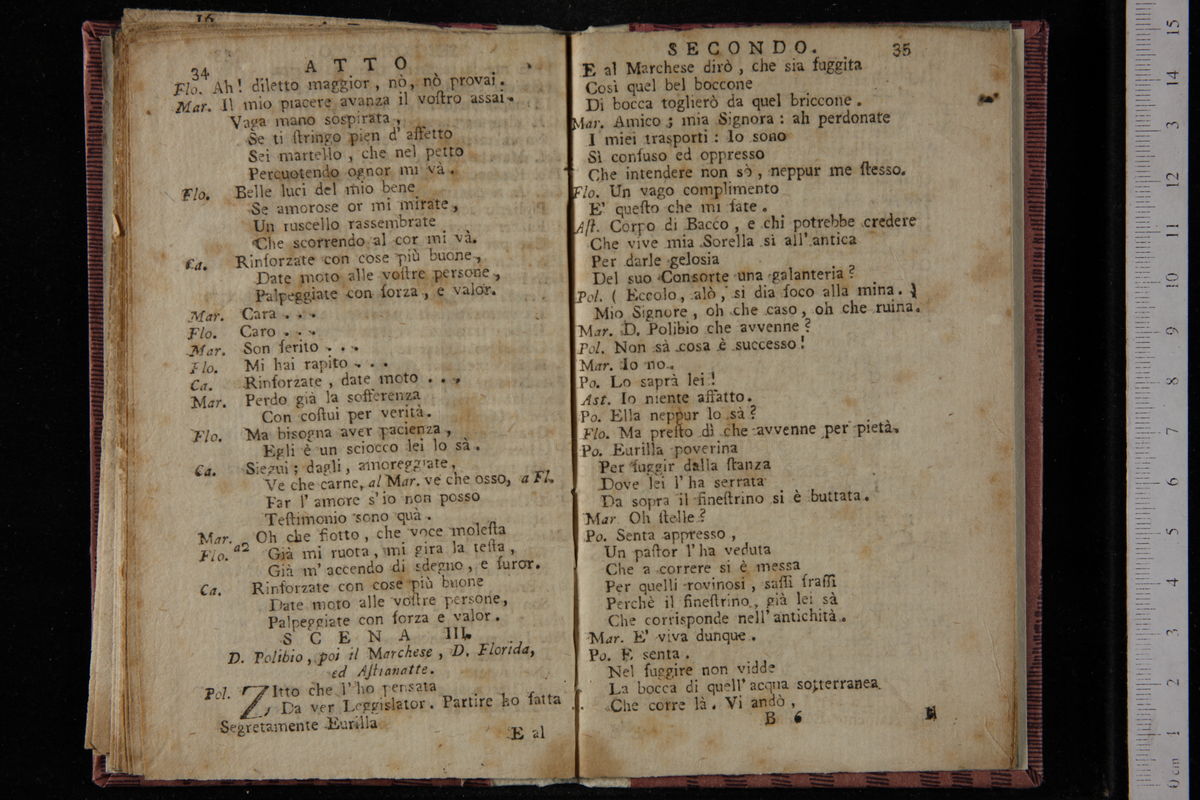 34 ATTO
Flo. Ah! diletto maggior, nò, nò provai.
Mar. Il mio piacere avanza il voſtro assai.
Vaga mano sospirata,
Se ti ſtringo pien d'affetto
Sei martello, che nel petto
Percuotendo ognor mi và.
Flo. Belle luci del mio bene
Se amorose or mi mirate,
Un ruscello rassembrate
Che scorrendo al cor mi và.
Ca. Rinforzate con cose più buone,
Date moto alle voſtre persone,
Palpeggiate con forza, e valor.
Mar. Cara . . .
Flo. Caro . . .
Mar. Son ferito . . .
Flo. Mi hai rapito . . .
Ca. Rinforzate, date moto . . .
Mar. Perdo già la sofferenza
Con coſtui per verità.
Flo. Ma bisogna aver pacienza,
Egli è un sciocco lei lo sà.
Ca. Siegui; dagli, amoreggiate,
Ve che carne, al Mar. ve che osso, a Fl.
Far l'amore s'io non posso
Teſtimonio sono quà.
Mar. Oh che fiotto, che voce moleſta
Flo. a2 Già mi ruota, mi gira la teſta,
Già m'accendo di sdegno, e furor.
Ca. Rinforzate con cose più buone
Date moto alle voſtre persone,
Palpeggiate con forza e valor.
SCENA III.
D. Polibio, poi il Marchese, D. Florida,
ed Aſtianatte.
Pol. ZItto che l'ho pensata
Da ver Leggislator. Partire ho fatta
Segretamente Eurilla
E al
SECONDO. 35
E al Marchese dirò, che sia fuggita
Così quel bel boccone
Di bocca toglierò da quel briccone.
Mar. Amico; mia Signora: ah perdonate
I miei trasporti: Io sono
Sì confuso ed oppresso
Che intendere non sò, neppur me ſtesso.
Flo. Un vago complimento
E' queſto che mi fate.
Aſt. Corpo di Bacco, e chi potrebbe credere
Che vive mia Sorella sì all'antica
Per darle gelosia
Del suo Consorte una galanteria?
Pol. (Eccolo, alò, si dia foco alla mina.)
Mio Signore, oh che caso, oh che ruina.
Mar. D. Polibio che avvenne?
Pol. Non sà cosa è successo!
Mar. Io no.
Po. Lo saprà lei!
Ast. Io niente affatto.
Po. Ella neppur lo sà?
Flo. Ma preſto di che avvenne per pietà.
Po. Eurilla poverina
Per fuggir dalla ſtanza
Dove lei l'ha serrata
Da sopra il fineſtrino si è buttata.
Mar. Oh ſtelle?
Po. Senta appresso,
Un paſtor l'ha veduta
Che a correre si è messa
Per quelli rovinosi, saſſi fraſſi
Perchè il fineſtrino, già lei sà
Che corrisponde nell'antichità.
Mar. E' viva dunque.
Po. E senta.
Nel fuggire non vidde
La bocca di quell'acqua sotterranea
Che corre là. Vi andò,
B 6